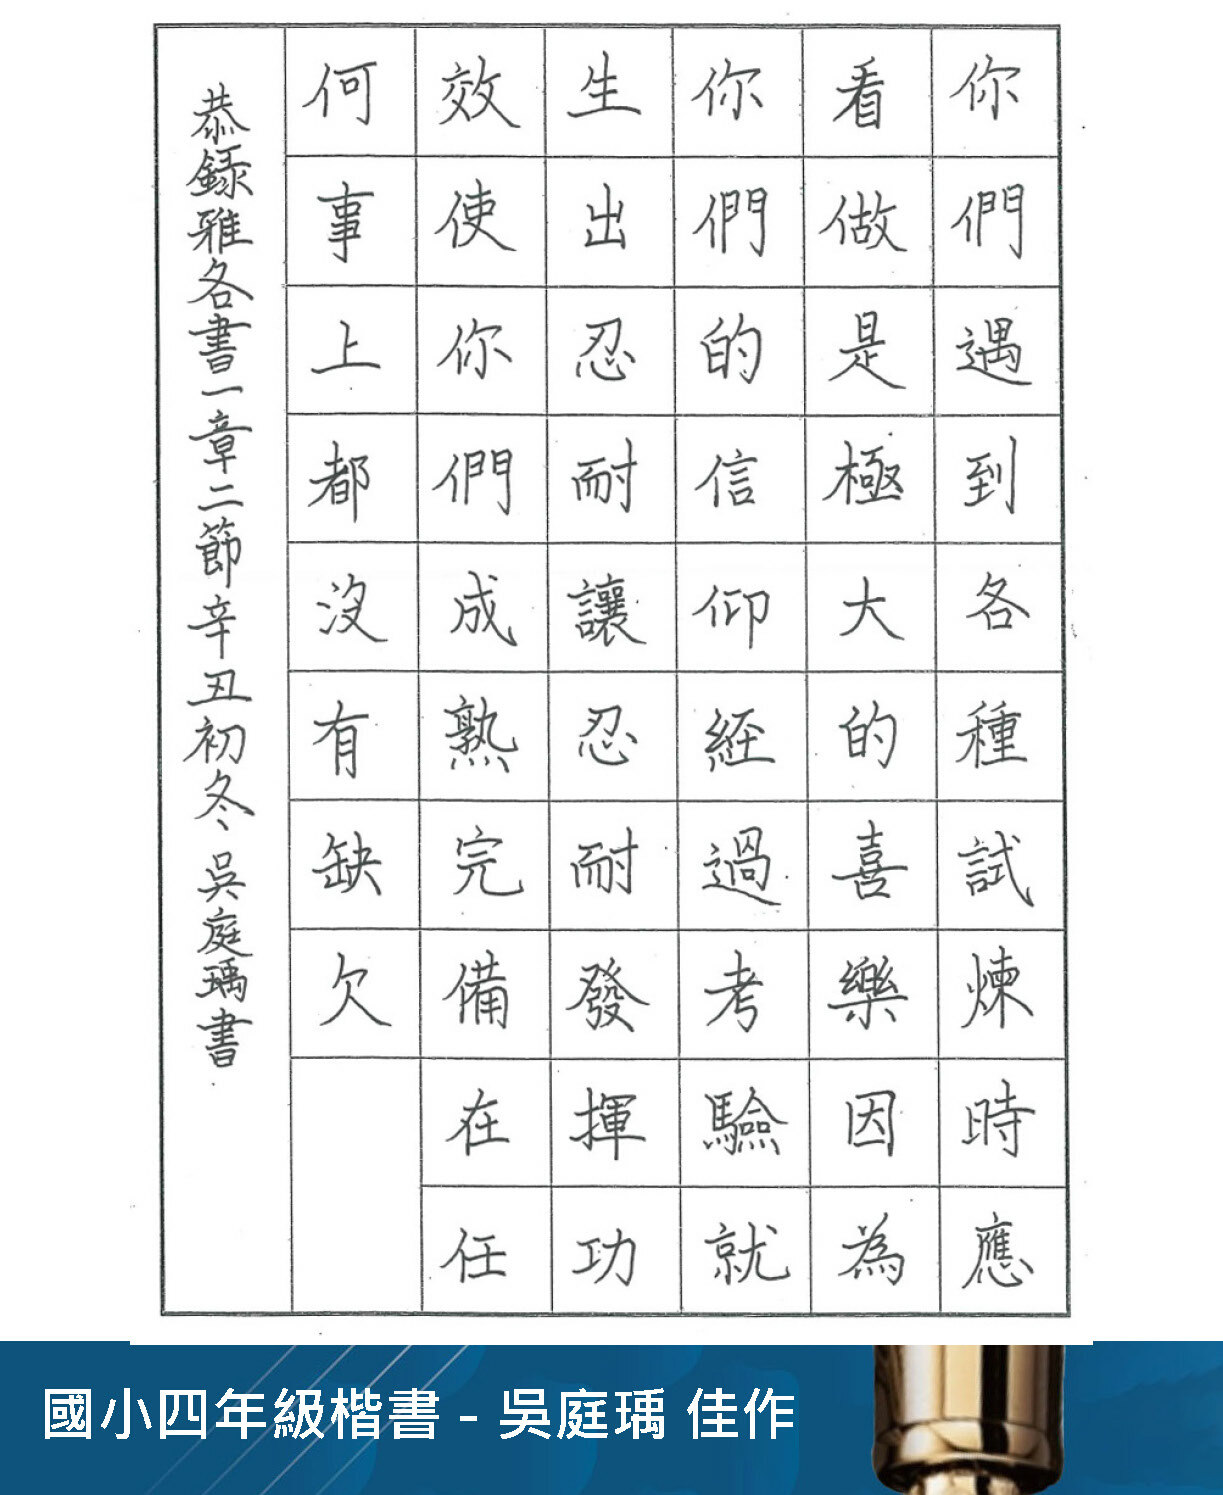 你們遇到各種試煉時應
看做是極大的喜樂因為
你們的信仰經過考驗就
生出忍耐讓忍耐發揮功
效使你們成熟完備在任
何事上都沒有缺欠
恭錄雅各書一章二節辛丑初冬吳庭瑀書
國小四年級楷書 - 吳庭瑀 佳作